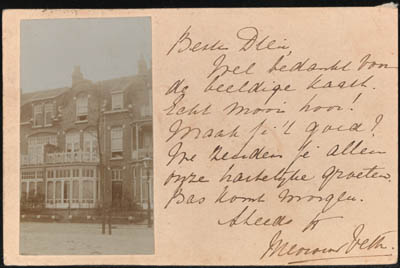 Beste Dien,
Wel bedankt voor
de beeldige kaart.
Echt mooi hoor!
Maak je 't goed?
We zenden je allen
onze hartelijke groeten.
Bas komt morgen.
Steeds
Mevrouw Veth.